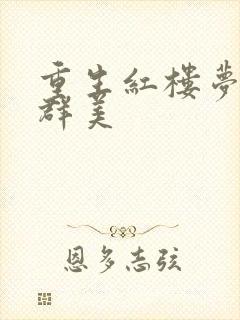 重生紅樓夢
群美
恩多志弦